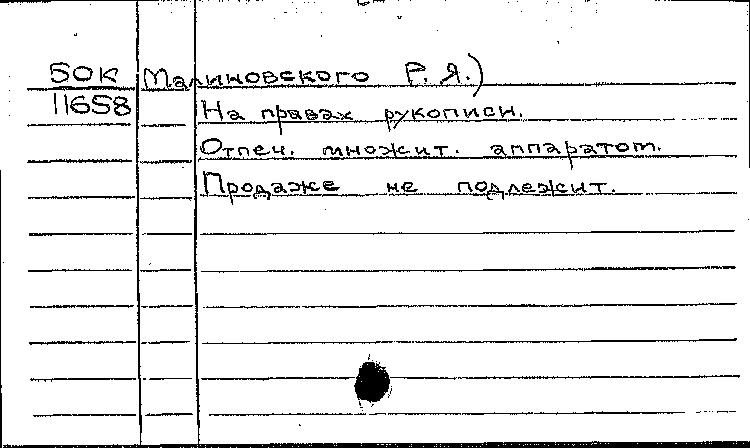 50К Малиновского Р. Я.)
11658 На правах рукописи.
Отпеч. множит. аппаратом.
Продаже не подлежит.